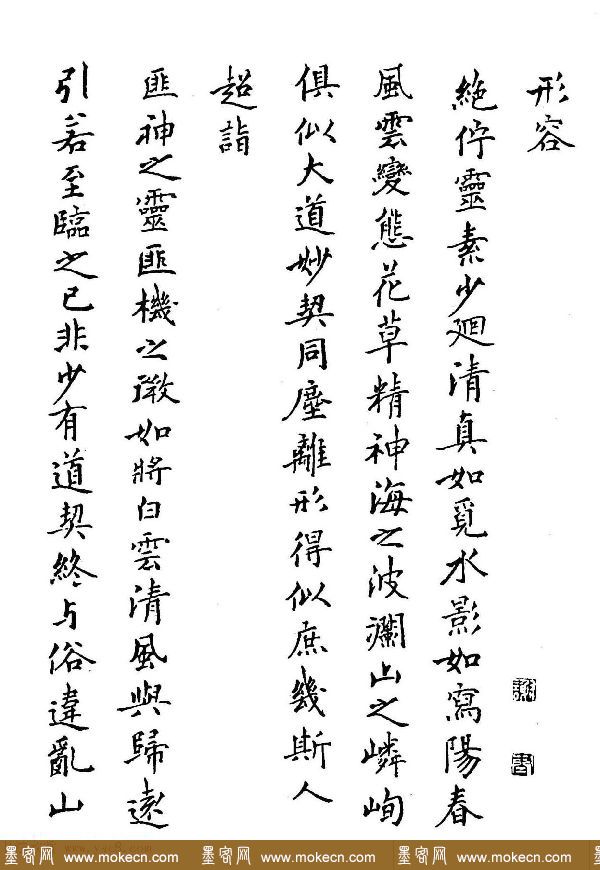 形容
絶佇靈素少廻清真如覓水影如寫陽春
風雲變態花草精神海之波瀾山之嶙峋
俱似大道妙契同塵離形得似庶幾斯人
超詣
匪神之靈匪機之微如將白雲清風與歸遠
引若至臨之已非少有道契終与俗違亂山
墨客网 www.mokecn.com 墨客网 www.mokecn.com 墨客网 www.mokecn.com 墨客